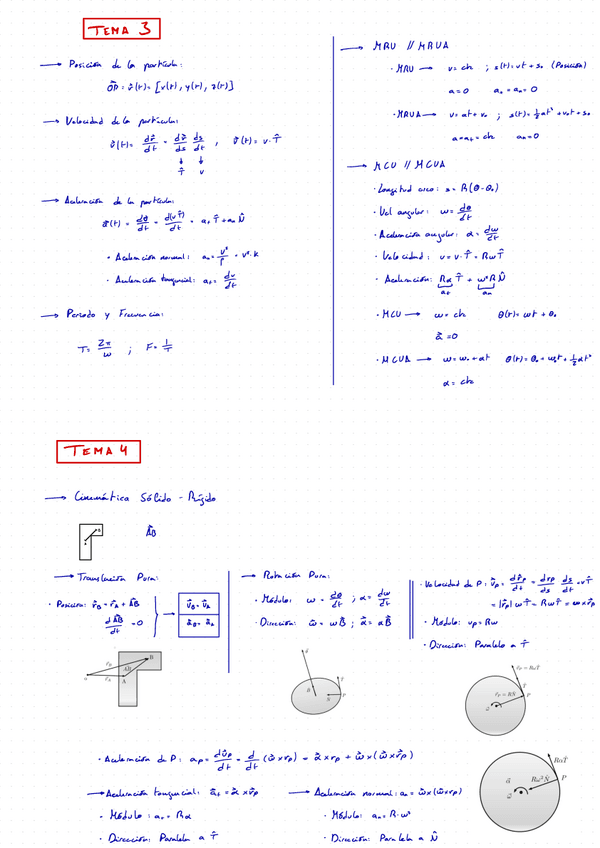 TEMA 3
→ Posición de la partícula:
O⃗P = r⃗(t) = [x(t), y(t), z(t)]
→ Velocidad de la partícula:
v⃗(t) = dr⃗/dt = dr⃗/ds ds/dt , v⃗(t) = v · T̂
↓ ↓
T̂ v
→ Aceleración de la partícula:
a⃗(t) = dv⃗/dt = d(vT̂)/dt = a_t T̂ + a_n N̂
· Aceleración normal: a_n = v²/r = v² · k
· Aceleración tangencial: a_t = dv/dt
→ Periodo y Frecuencia:
T = 2π/ω ; F = 1/T
→ MRU // MRUA
· MRU → v = cte ; s(t) = vt + s₀ (Posición)
a = 0 a_t = a_n = 0
· MRUA → v = at + v₀ ; s(t) = ½at² + v₀t + s₀
a = a_t = cte a_n = 0
→ MCU // MCUA
· Longitud arco: s = R(θ - θ₀)
· Vel angular: ω = dθ/dt
· Aceleración angular: α = dω/dt
· Velocidad: v = v · T̂ = RωT̂
· Aceleración: Rα T̂ + ω²R N̂
a_t a_n
· MCU → ω = cte θ(t) = ωt + θ₀
α⃗ = 0
· MCUA → ω = ω₀ + αt θ(t) = θ₀ + ω₀t + ½αt²
α = cte
TEMA 4
→ Cinemática Sólido - Rígido
A B
A⃗B
→ Translación Pura:
· Posición: r⃗_B = r⃗_A + A⃗B
dA⃗B/dt = 0
→ v⃗_B = v⃗_A
a⃗_B = a⃗_A
r⃗_B A⃗B B
o r⃗_A A
→ Rotación Pura:
· Módulo: ω = dθ/dt ; α = dω/dt
· Dirección: ω⃗ = ωB̂ ; α⃗ = αB̂
· Velocidad de P: v⃗_P = dr⃗_P/dt = dr_P/ds ds/dt = vT̂
= |r⃗_P| ω T̂ = RωT̂ = ω×r_P
· Módulo: v_P = Rω
· Dirección: Paralelo a T̂
v⃗_P = RωT̂
T̂
r⃗_P = RN̂ P
ω⃗
· Aceleración de P: a_P = dv⃗_P/dt = d/dt (ω⃗×r_P) = α⃗×r_P + ω⃗×(ω⃗×r⃗_P)
→ Aceleración tangencial: a⃗_t = α⃗×r⃗_P
· Módulo: a_n = Rα
· Dirección: Paralela a T̂
→ Aceleración normal: a_n = ω⃗×(ω⃗×r_P)
· Módulo: a_n = R·ω²
· Dirección: Paralela a N̂
RαT̂
α⃗ Rω²N̂ P
ω⃗